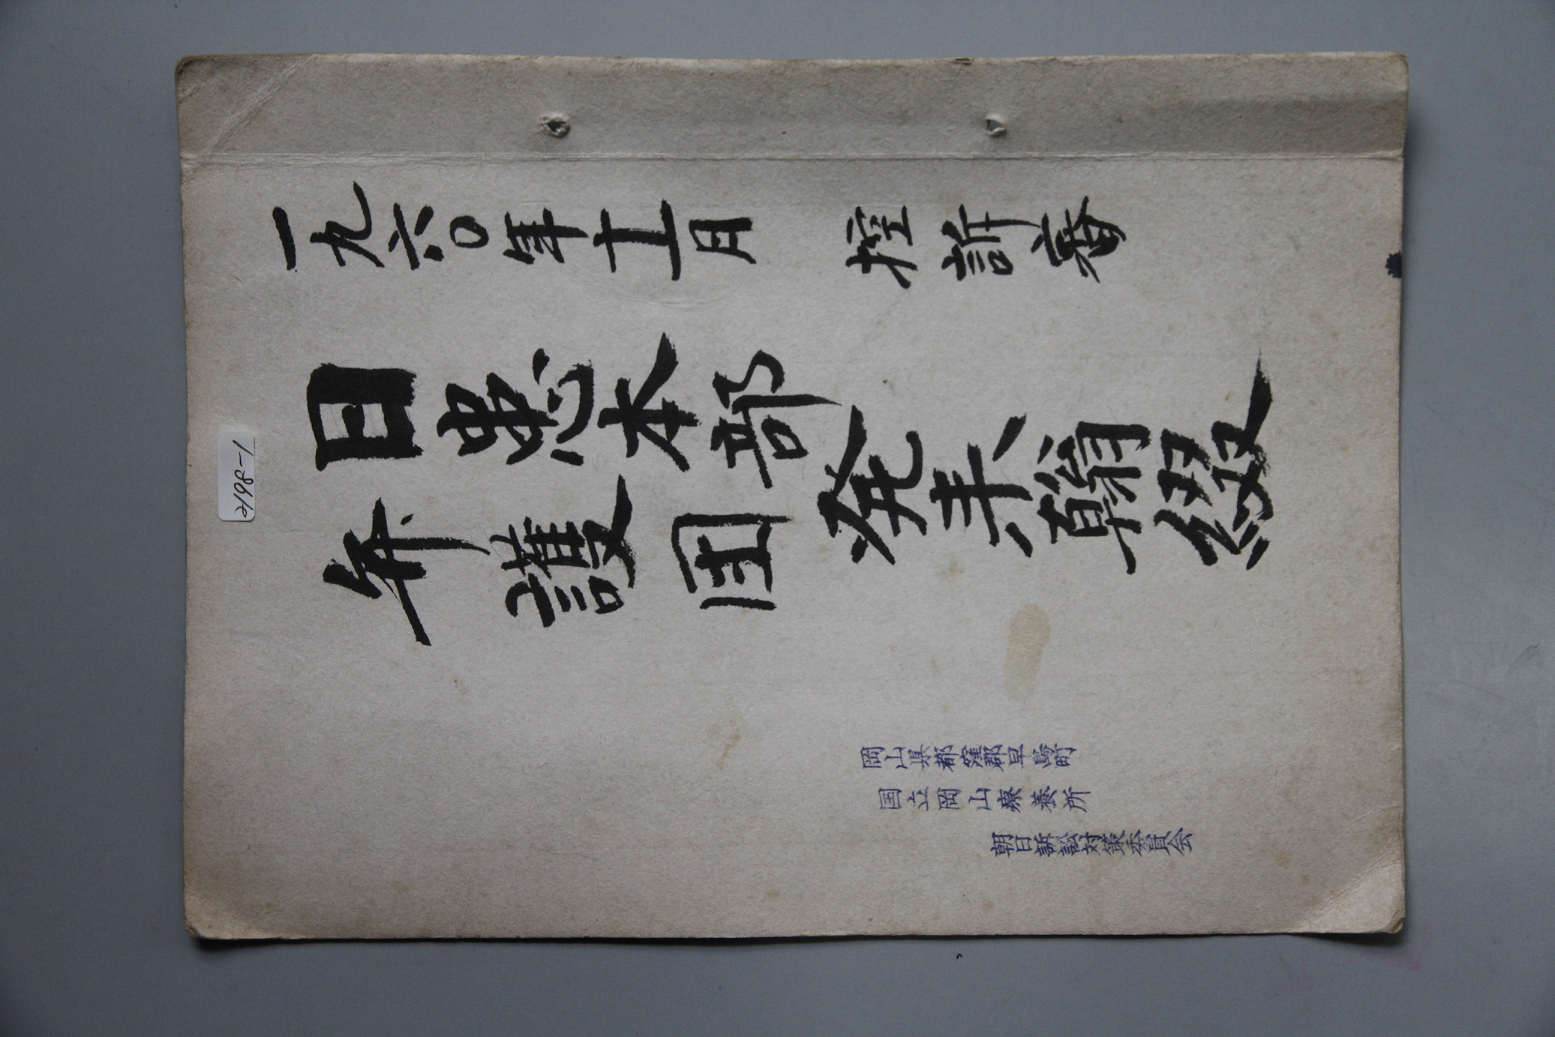 一九六〇年十一月　控訴審
日患本部
弁護団
発来翰綴
岡山県都窪郡早島町
国立岡山療養所
朝日訴訟対策委員会